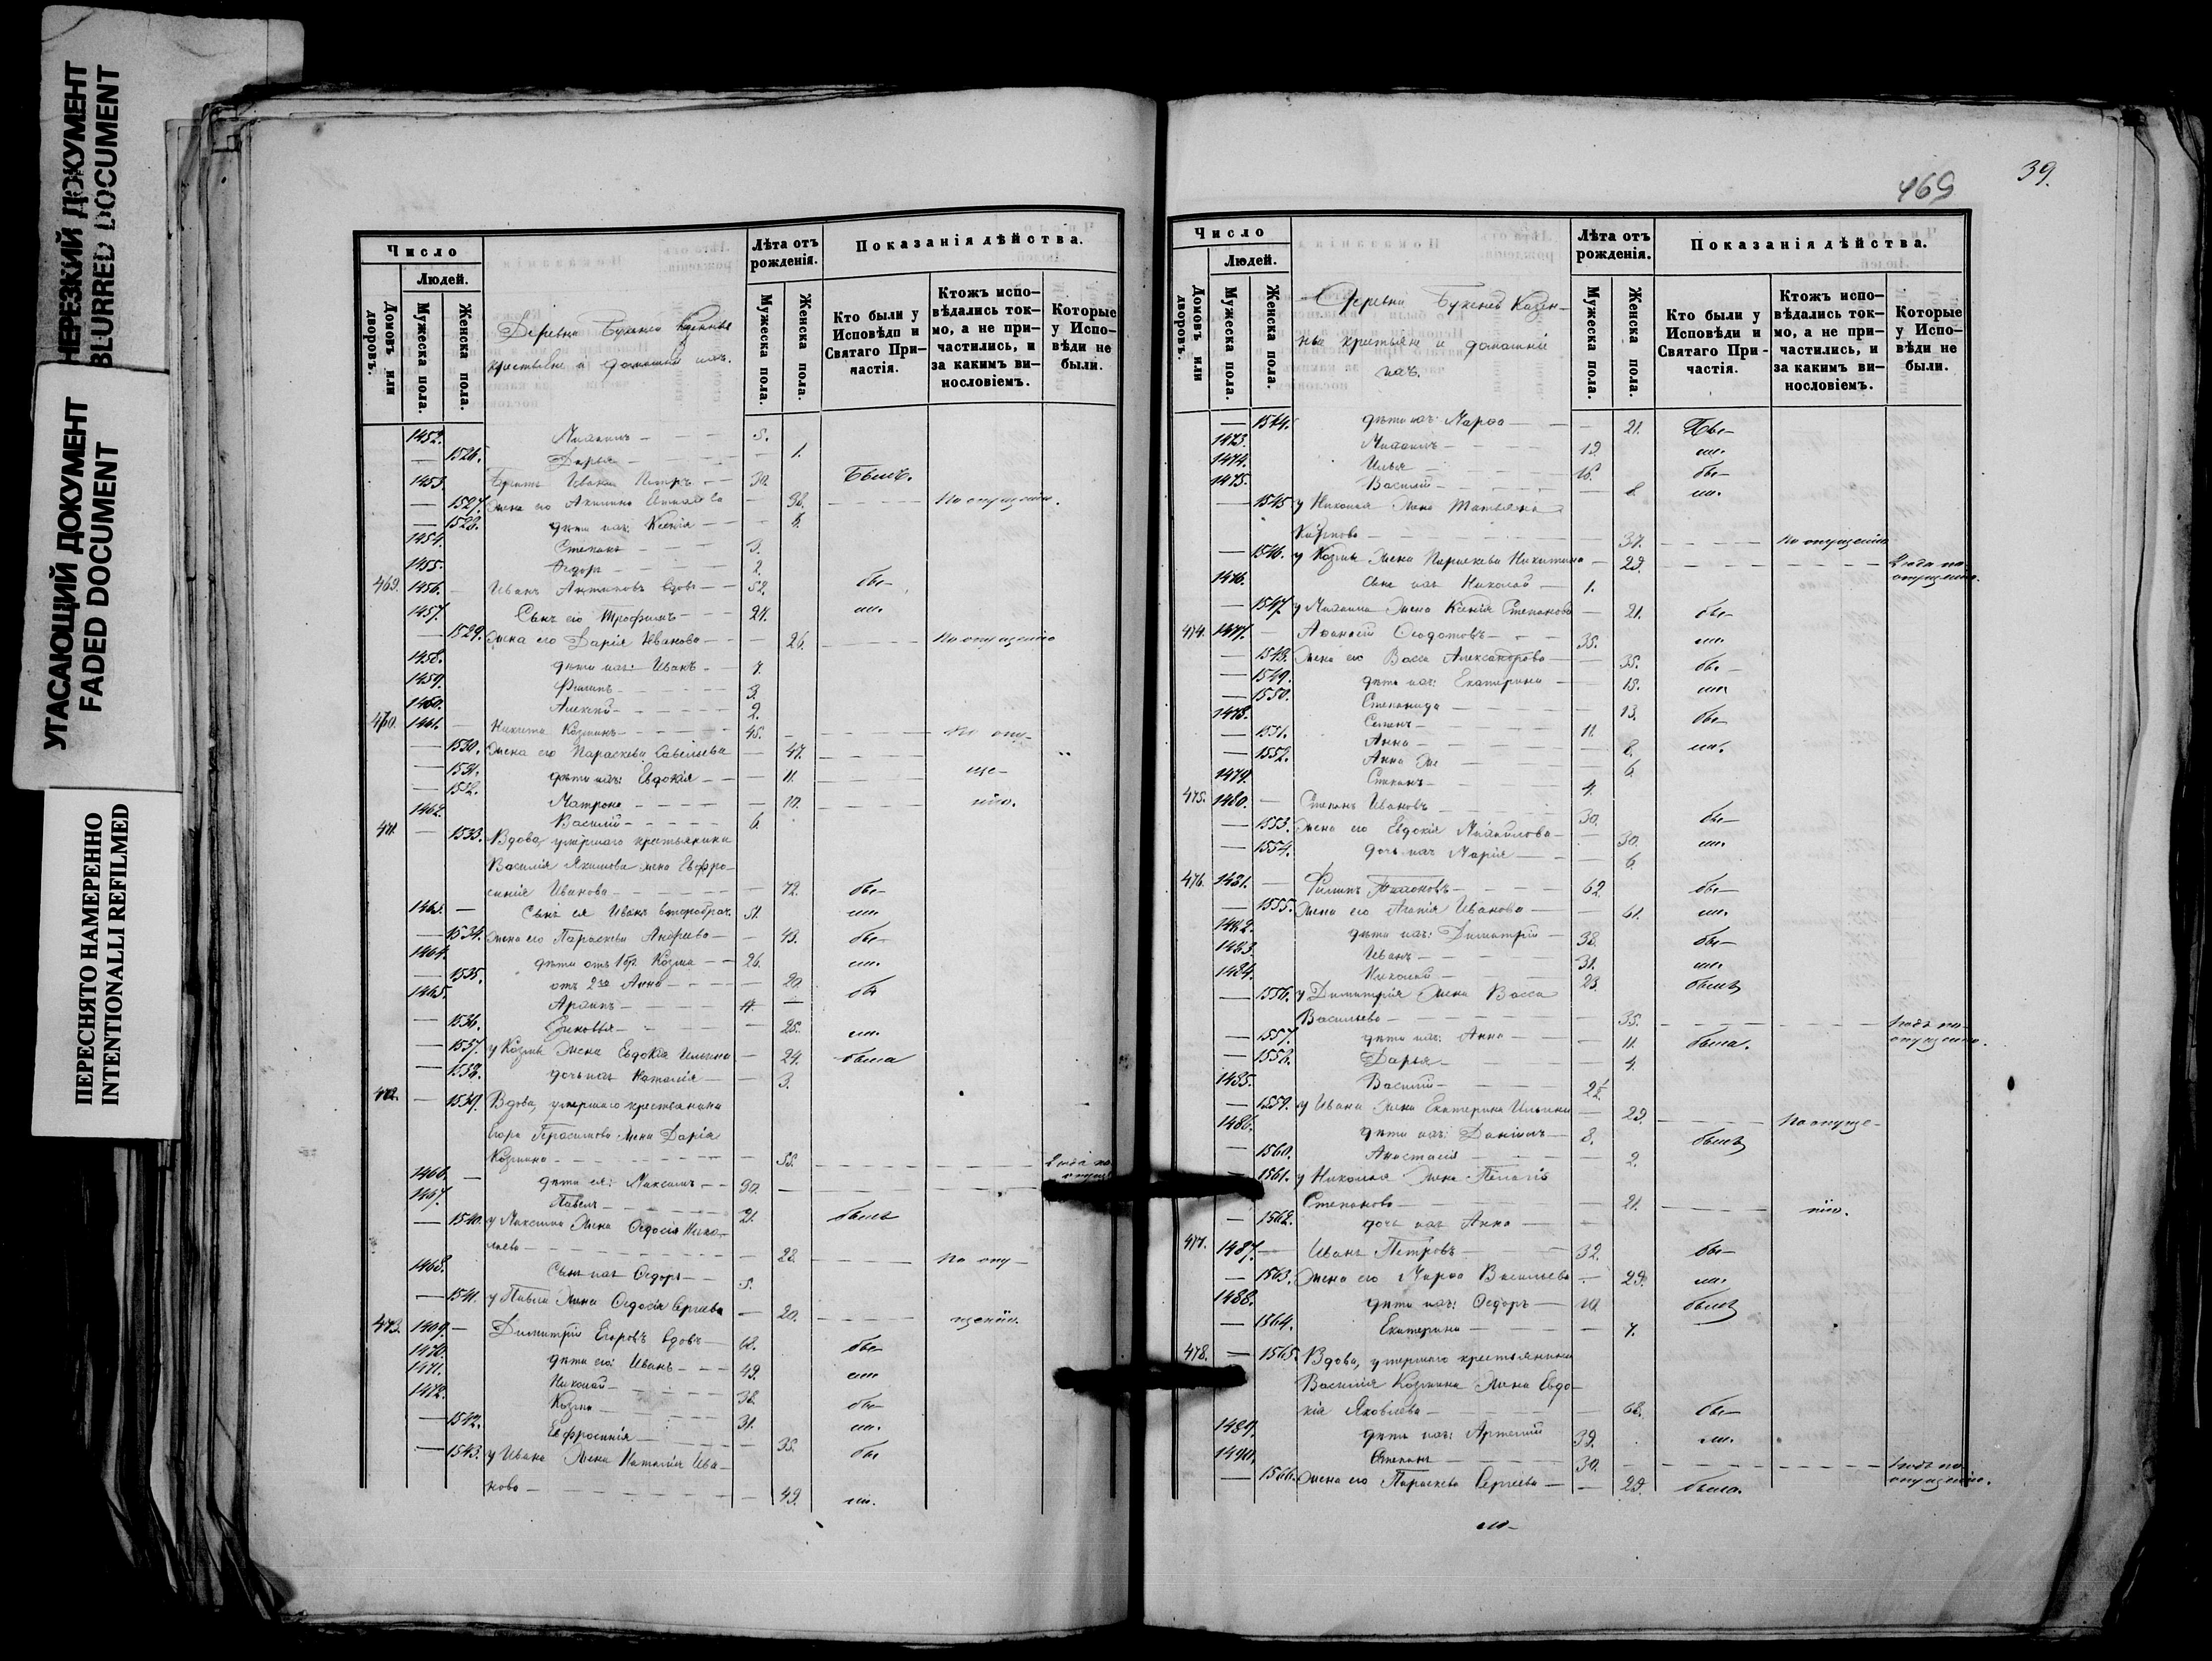 НЕРЕЗКИЙ ДОКУМЕНТ
BLURRED DOCUMENT
УГАСАЮЩИЙ ДОКУМЕНТ
FADED DOCUMENT
ПЕРЕСНЯТО НАМЕРЕННО
INTENTIONALLI REFILMED
Число
Людей.
Домовъ или дворовъ.
Мужеска пола.
Женска пола.
Деревня
Лѣта отъ рожденія.
Мужеска пола.
Женска пола.
Показанія дѣйства.
Кто были у Исповѣди и Святаго При-частія.
Ктожъ испо-вѣдались ток-мо, а не при-частились, и за какимъ ви-нословіемъ.
Которые у Испо-вѣди не были.
1452. Михаилъ 5.
1526. Дарья 1.
1453. Братъ Иванъ Петръ 30. Былъ.
1527. Жена его Акилина 32. По опущенію.
1528. дѣти ихъ: Ксенія
1454. Степанъ 3.
1455. Ѳедоръ 2.
469. 1456. Иванъ вдовъ 52. бы-
1457. Сынъ его Трофимъ 24. ли.
1529. Жена его Дарія Иванова 26. По опущенію
1458. дѣти ихъ: Иванъ 7.
1459. Филипъ 3.
1460. Алексѣй 2.
470. 1461. Никита Козминъ 45. По опу-
1530. Жена его Параскева Савельева 47.
1531. дѣти ихъ: Евдокія 11. ще-
1532. Матрона 10. нію.
1462. Василій 6.
471. 1533. Вдова, умершаго крестьянина
Василія Якимова жена Евфро-
синія Иванова 72. бы-
1463. Сынъ ея Иванъ второбрач. 51. ли.
1534. Жена его Параскева Андреева 43. бы-
1464. дѣти отъ 1 бр. Козма 26. ли.
1535. отъ 2го Анна 20. бы
1465. Архипъ
1536. 25. ли.
1537. у Козмы жена Евдокія Ильина 24. была
1538. дочь ихъ Наталія 3.
472. 1539. Вдова, умершаго крестьянина
Егора Герасимова жена Дарія
Козмина 55. 2 года по
1466. дѣти ея: Максимъ 30.
1467. Павелъ 21. былъ
1540. у Максима жена Ѳедосія Нико-
лаева 28. По опу-
1468. Сынъ ихъ Ѳедоръ 5.
1541. у Павла жена Ѳедосія Сергѣева 20. щенію.
473. 1469. Димитрій Егоровъ вдовъ 68. бы-
1470. дѣти его: Иванъ 49. ли
1471. Николай 38. бы-
1472. Козма 31. ли.
1542. Евфросинія 35. бы
1543. у Ивана жена Наталія Ива-
нова 49. ли.
469
39.
Число
Людей.
Домовъ или дворовъ.
Мужеска пола.
Женска пола.
Деревня Казен-
ные крестьяне и домашніе
ихъ.
Лѣта отъ рожденія.
Мужеска пола.
Женска пола.
Показанія дѣйства.
Кто были у Исповѣди и Святаго При-частія.
Ктожъ испо-вѣдались ток-мо, а не при-частились, и за какимъ ви-нословіемъ.
Которые у Испо-вѣди не были.
1544. дѣти ихъ: Марѳа 21. Бы-
1473. Михаилъ 19. ли.
1474. Илья 16. бы-
1475. Василій 8. ли.
1545 у Николая жена Татьяна
Карпова 37. По опущенію
1546. у Козмы жена Параскева Никитина 29. 2 года по опущенію.
1476. Сынъ ихъ Николай 1.
1547. у Михаила жена Ксенія Степанова 21. бы-
474. 1477. Аѳанасій Ѳедотовъ 35. ли.
1548. Жена его Васса Александрова 35. бы-
1549. дѣти ихъ: Екатерина 15. ли
1550. Степанида 13. бы-
1478. Семенъ 11.
1551. Анна 8. ли.
1552. Анна же 6.
1479. Степанъ 4.
475. 1480. Степанъ Ивановъ 30. бы-
1553. Жена его Евдокія Михайлова 30. ли.
1554. дочь ихъ Марія 6.
476. 1481. Филипъ 62. бы-
1555. Жена его Агапія Иванова 61. ли.
1482. дѣти ихъ: Димитрій 38. бы-
1483. Иванъ 31. ли.
1484. Николай 23. былъ
1556. у Димитрія жена Васса
Васильева 35. 1 годъ по опущенію.
1557. дѣти ихъ: Анна 11. была.
1558. Дарья 4.
1485. Василій 2½
1559. у Ивана жена Екатерина Ильина 29. По опуще-
1486. дѣти ихъ: Даніилъ 8. былъ
1560. Анастасія 2.
1561. у Николая жена Пелагія
Степанова 21. нію.
1562. дочь ихъ Анна
477. 1487. Иванъ Петровъ 32. бы-
1563. Жена его Марѳа Васильева 29. ли.
1488. дѣти ихъ: Ѳедоръ 10. былъ
1564. Екатерина 7.
478. 1565. Вдова, умершаго крестьянина
Василія Козмина жена Евдо-
кія Яковлева 68. бы-
1489. дѣти ихъ: Артемій 39. ли.
1490. Степанъ 30. 1 годъ по опущенію.
1566. Жена его Параскева Сергѣева 29. была.